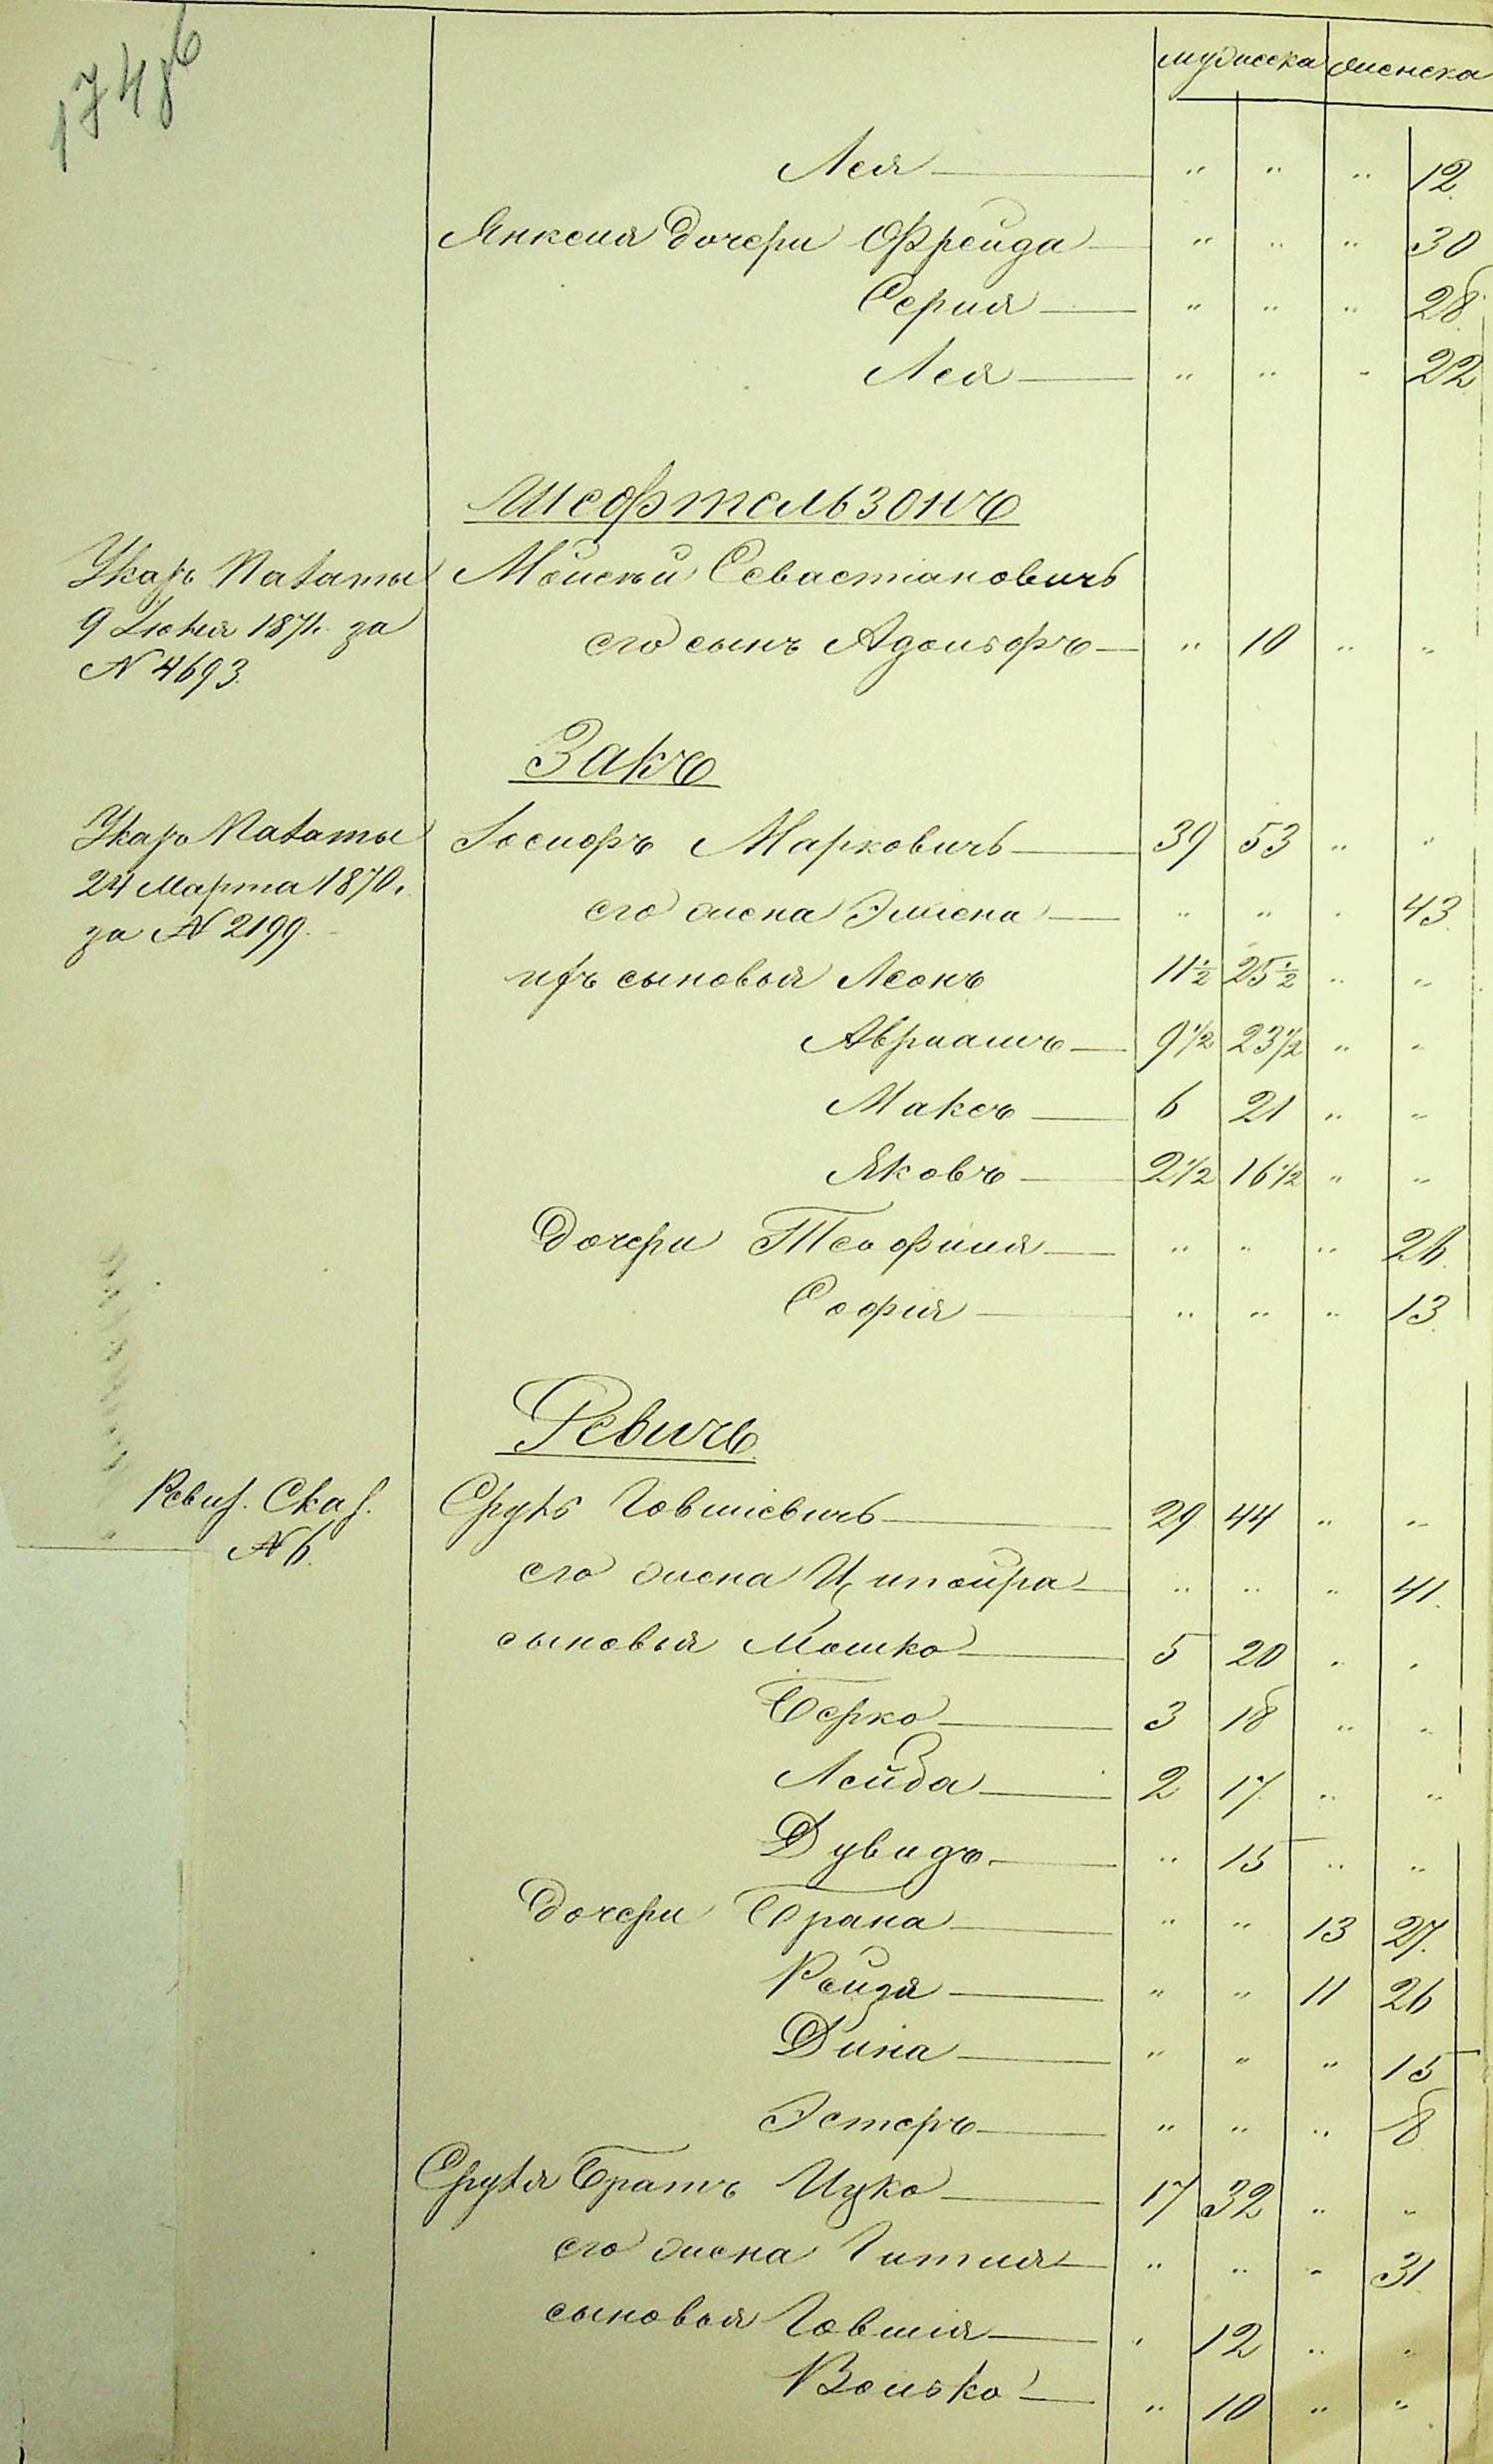 174 об
мужеска женска
Лея — " " " 12
Янкеля дочери Фрейда — " " " 30
Серля — " " " 28
Лея — " " " 22
Шефтельзонъ
Указъ Палаты Мойсей Севастіановичъ
9 Іюня 1871. за его сынъ Адольфъ — " 10 " "
N 4693.
Закъ
Указъ Палаты Іосифъ Марковичъ — 39 53 " "
24 Марта 1870. его жена Эмлена — " " " 43
за N 2199. ихъ сыновья Леонъ 11½ 25½ " "
Авраамъ — 9½ 23½ " "
Максъ — 6 21 " "
Яковъ — 2½ 16½ " "
Дочери Теофиля — " " " 26
Софія — " " " 13
Ревичъ
Ревиз. Сказ. Сруль Говшіевичъ — 29 44 " "
N 6. его жена Ципойра — " " " 41
сыновья Мошко — 5 20 " "
Берко — 3 18 " "
Лейба — 2 17 " "
Дувидъ — " 15 " "
Дочери Брана — " " 13 27
Рейзя — " " 11 26
Дина — " " " 15
Эстеръ — " " " 8
Сруля Братъ Ицко — 17 32 " "
его жена Гитля — " " " 31
сыновья Говшія — " 12 " "
Волько — " 10 " "